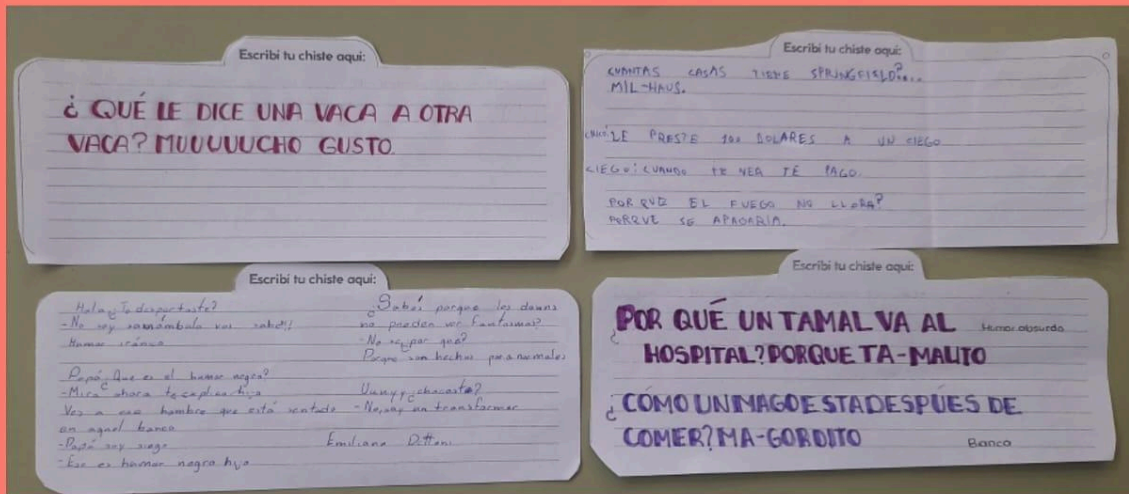 Escribí tu chiste aquí:
¿ QUÉ LE DICE UNA VACA A OTRA
VACA? MUUUUUCHO GUSTO.
Escribí tu chiste aquí:
CUANTAS CASAS TIENE SPRINGFIELD?....
MIL-HAUS.
CHICO: LE PRESTE 100 DOLARES A UN CIEGO
CIEGO: CUANDO TE VEA TE PAGO.
POR QUE EL FUEGO NO LLORA?
PORQUE SE APAGARIA.
Escribí tu chiste aquí:
Hola ¿Te despertaste?
-No soy sonámbulo vos sabés!!
Humor irónico
Papá ¿Que es el humor negro?
-Mira ahora te explico hijo
Ves a ese hombre que está sentado
en aquel banco
-Papá soy siego
-Ese es humor negro hijo
¿Sabés porque los downs
no pueden ver fantasmas?
-No ¿por qué?
Porque son hechos paranormales
Uuuyy ¿chocaste?
-No, soy un transformer
Emiliano
Escribí tu chiste aquí:
¿POR QUÉ UN TAMAL VA AL Humor absurdo
HOSPITAL? PORQUE TA-MALITO
¿CÓMO UN MAGO ESTA DESPÚES DE
COMER? MA-GORDITO Banco